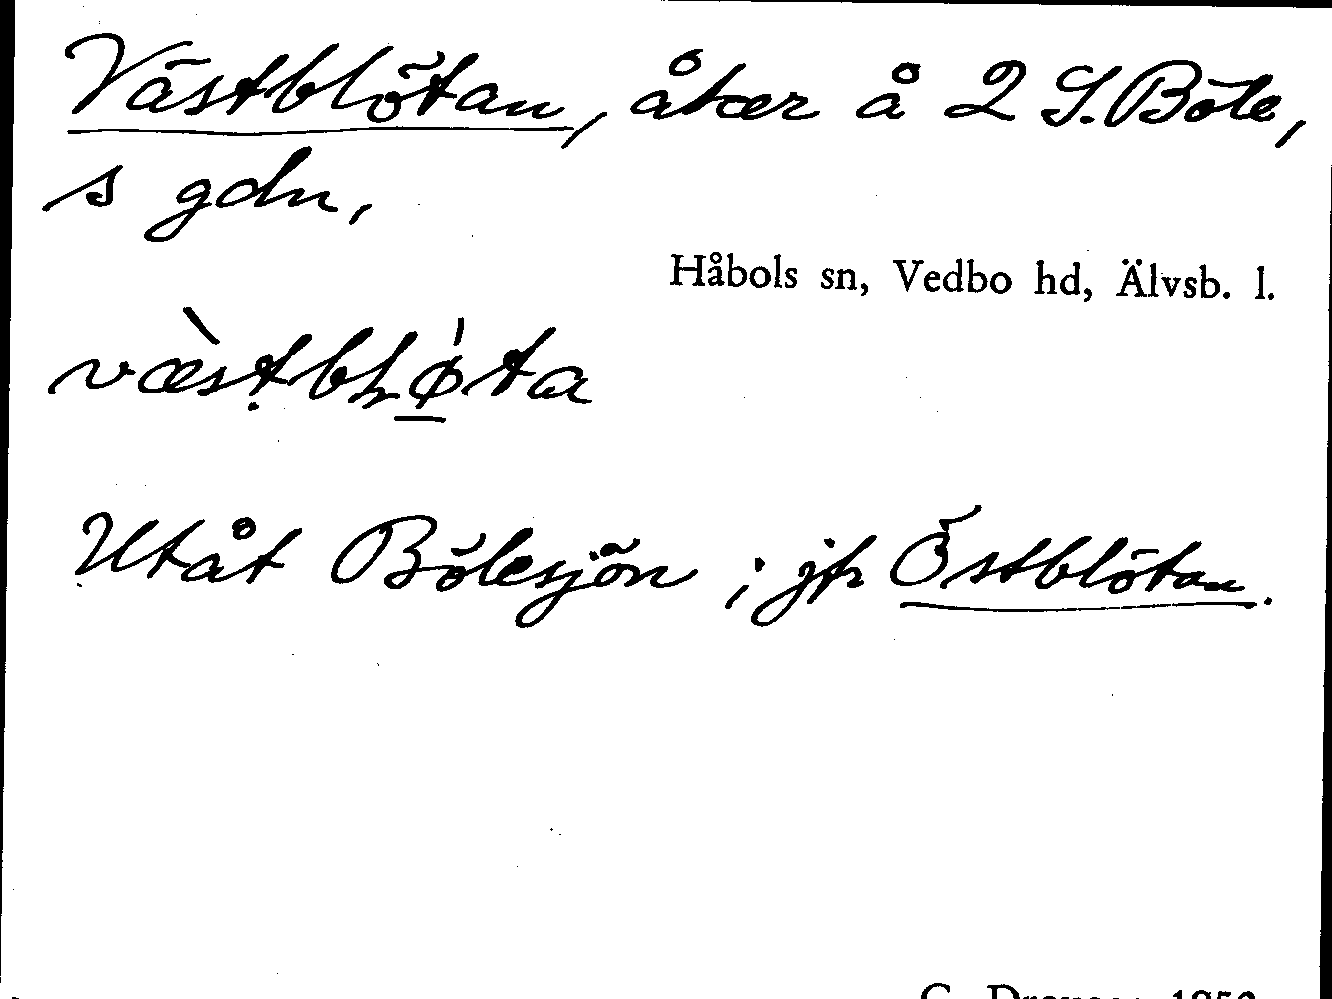 Västblötan, åker å 2 S. Böle,
s gdn,
Håbols sn, Vedbo hd, Älvsb. l.
Utåt Bölesjön ; jfr Östblötan.